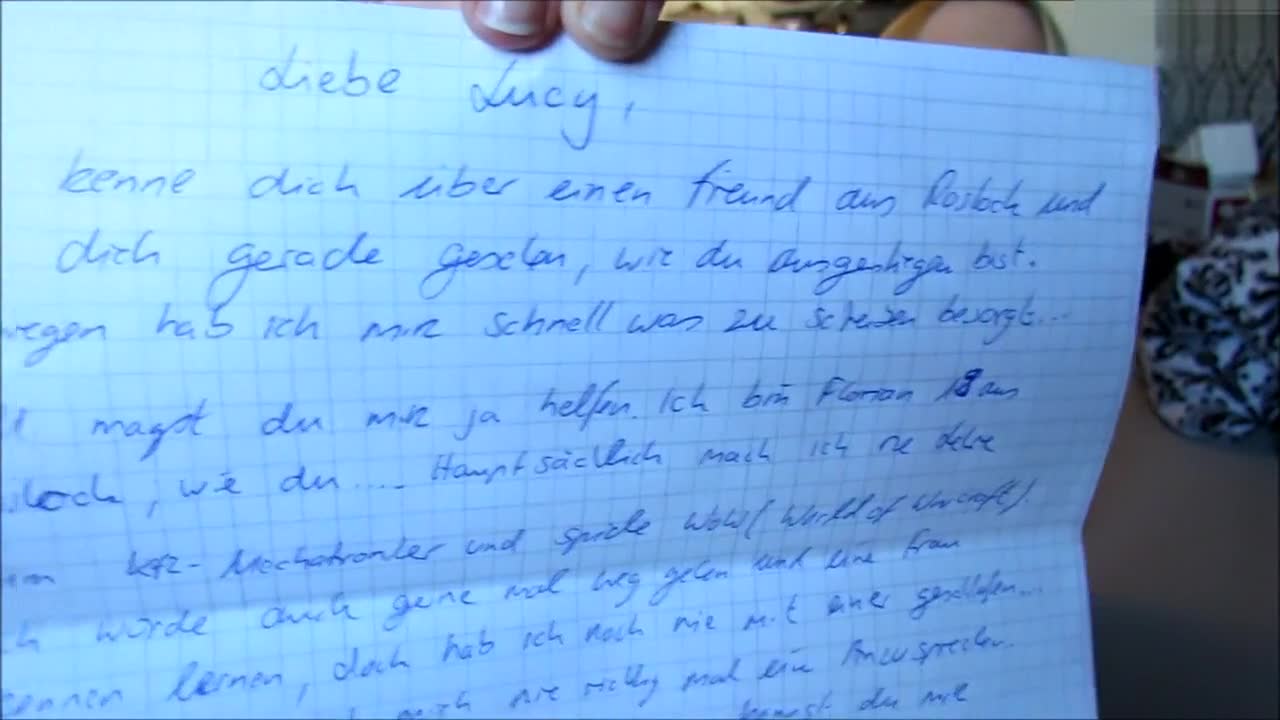 Liebe Lucy,
kenne dich über einen Freund aus Rostock und
dich gerade gesehen, wie du ausgestiegen bist.
wegen hab ich mir schnell was zu schreiben besorgt...
magst du mir ja helfen. Ich bin Florian 18 aus
Rostock, wie du.... Hauptsächlich mach ich ne Lehre
zum Kfz-Mechatroniker und spiele WoW (World of Warcraft).
würde auch gerne mal weg gehen und eine Frau
kennen lernen, doch hab ich noch nie mit einer geschlafen...
mich nie richtig mal eine Anzusprechen.
kannst du mir